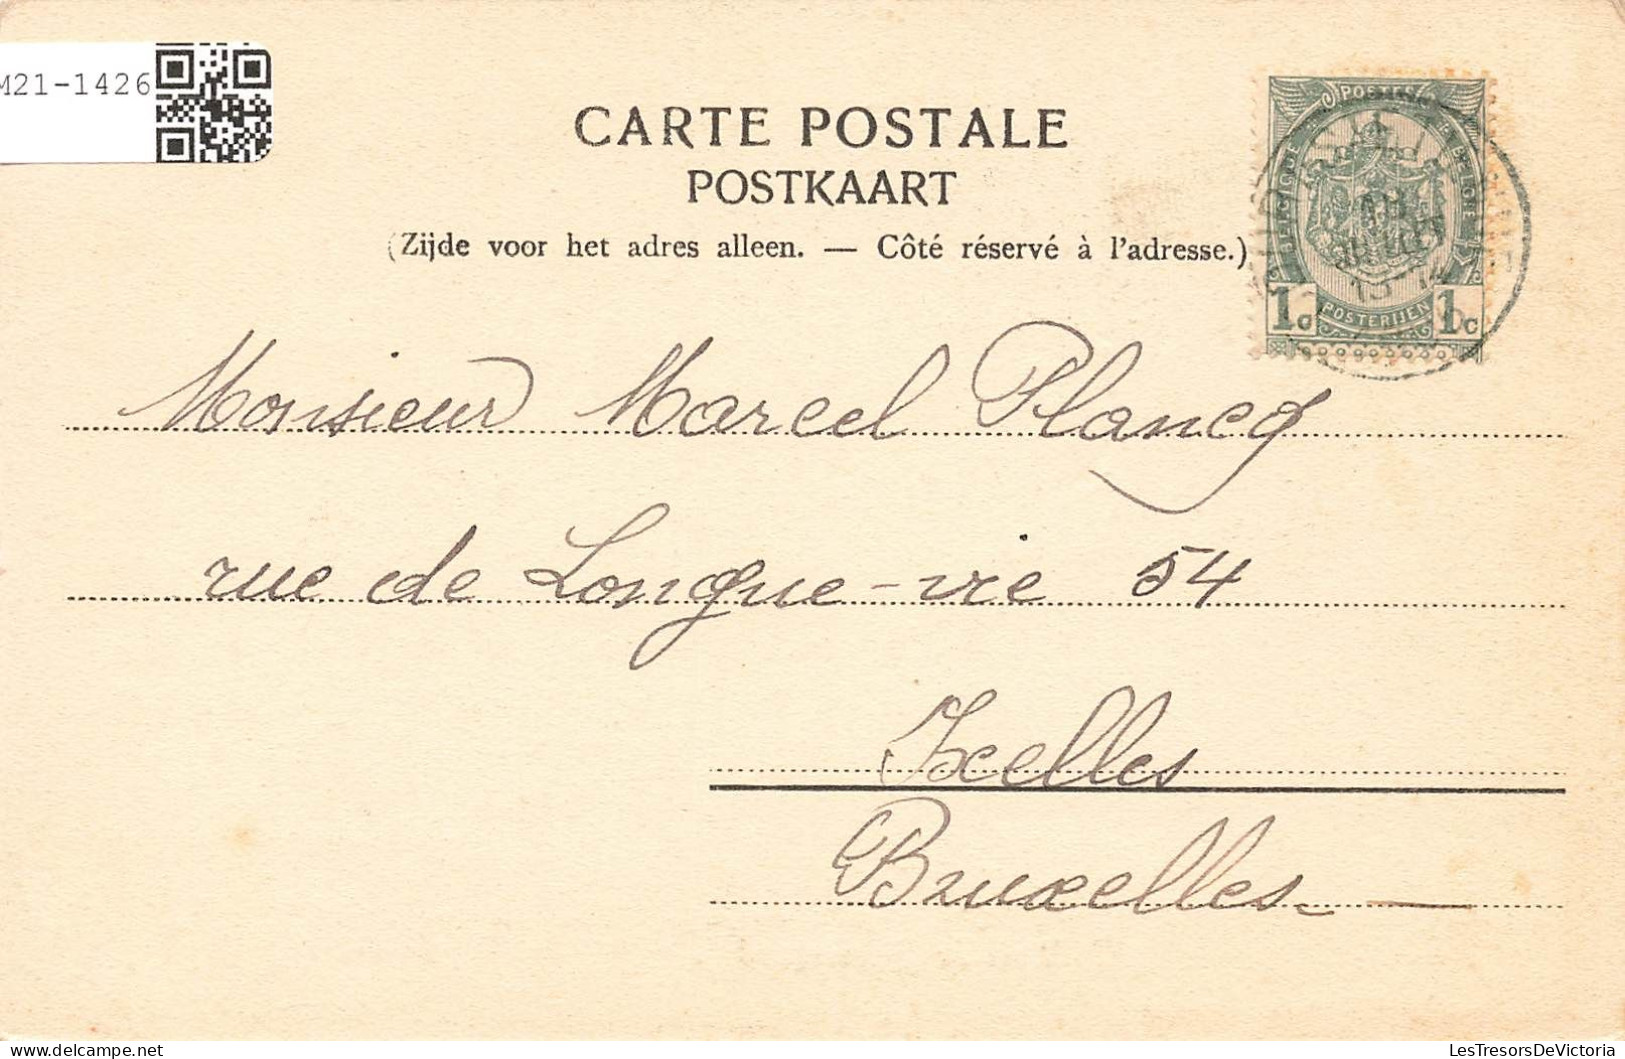 M21-1426
CARTE POSTALE
POSTKAART
(Zijde voor het adres alleen. — Côté réservé à l'adresse.)
POSTES
BELGIQUE BELGIQUE
1c POSTERIJEN 1c
Monsieur Marcel Plancq
rue de Longue-vie 54
Ixelles
Bruxelles
LesTresorsDeVictoria